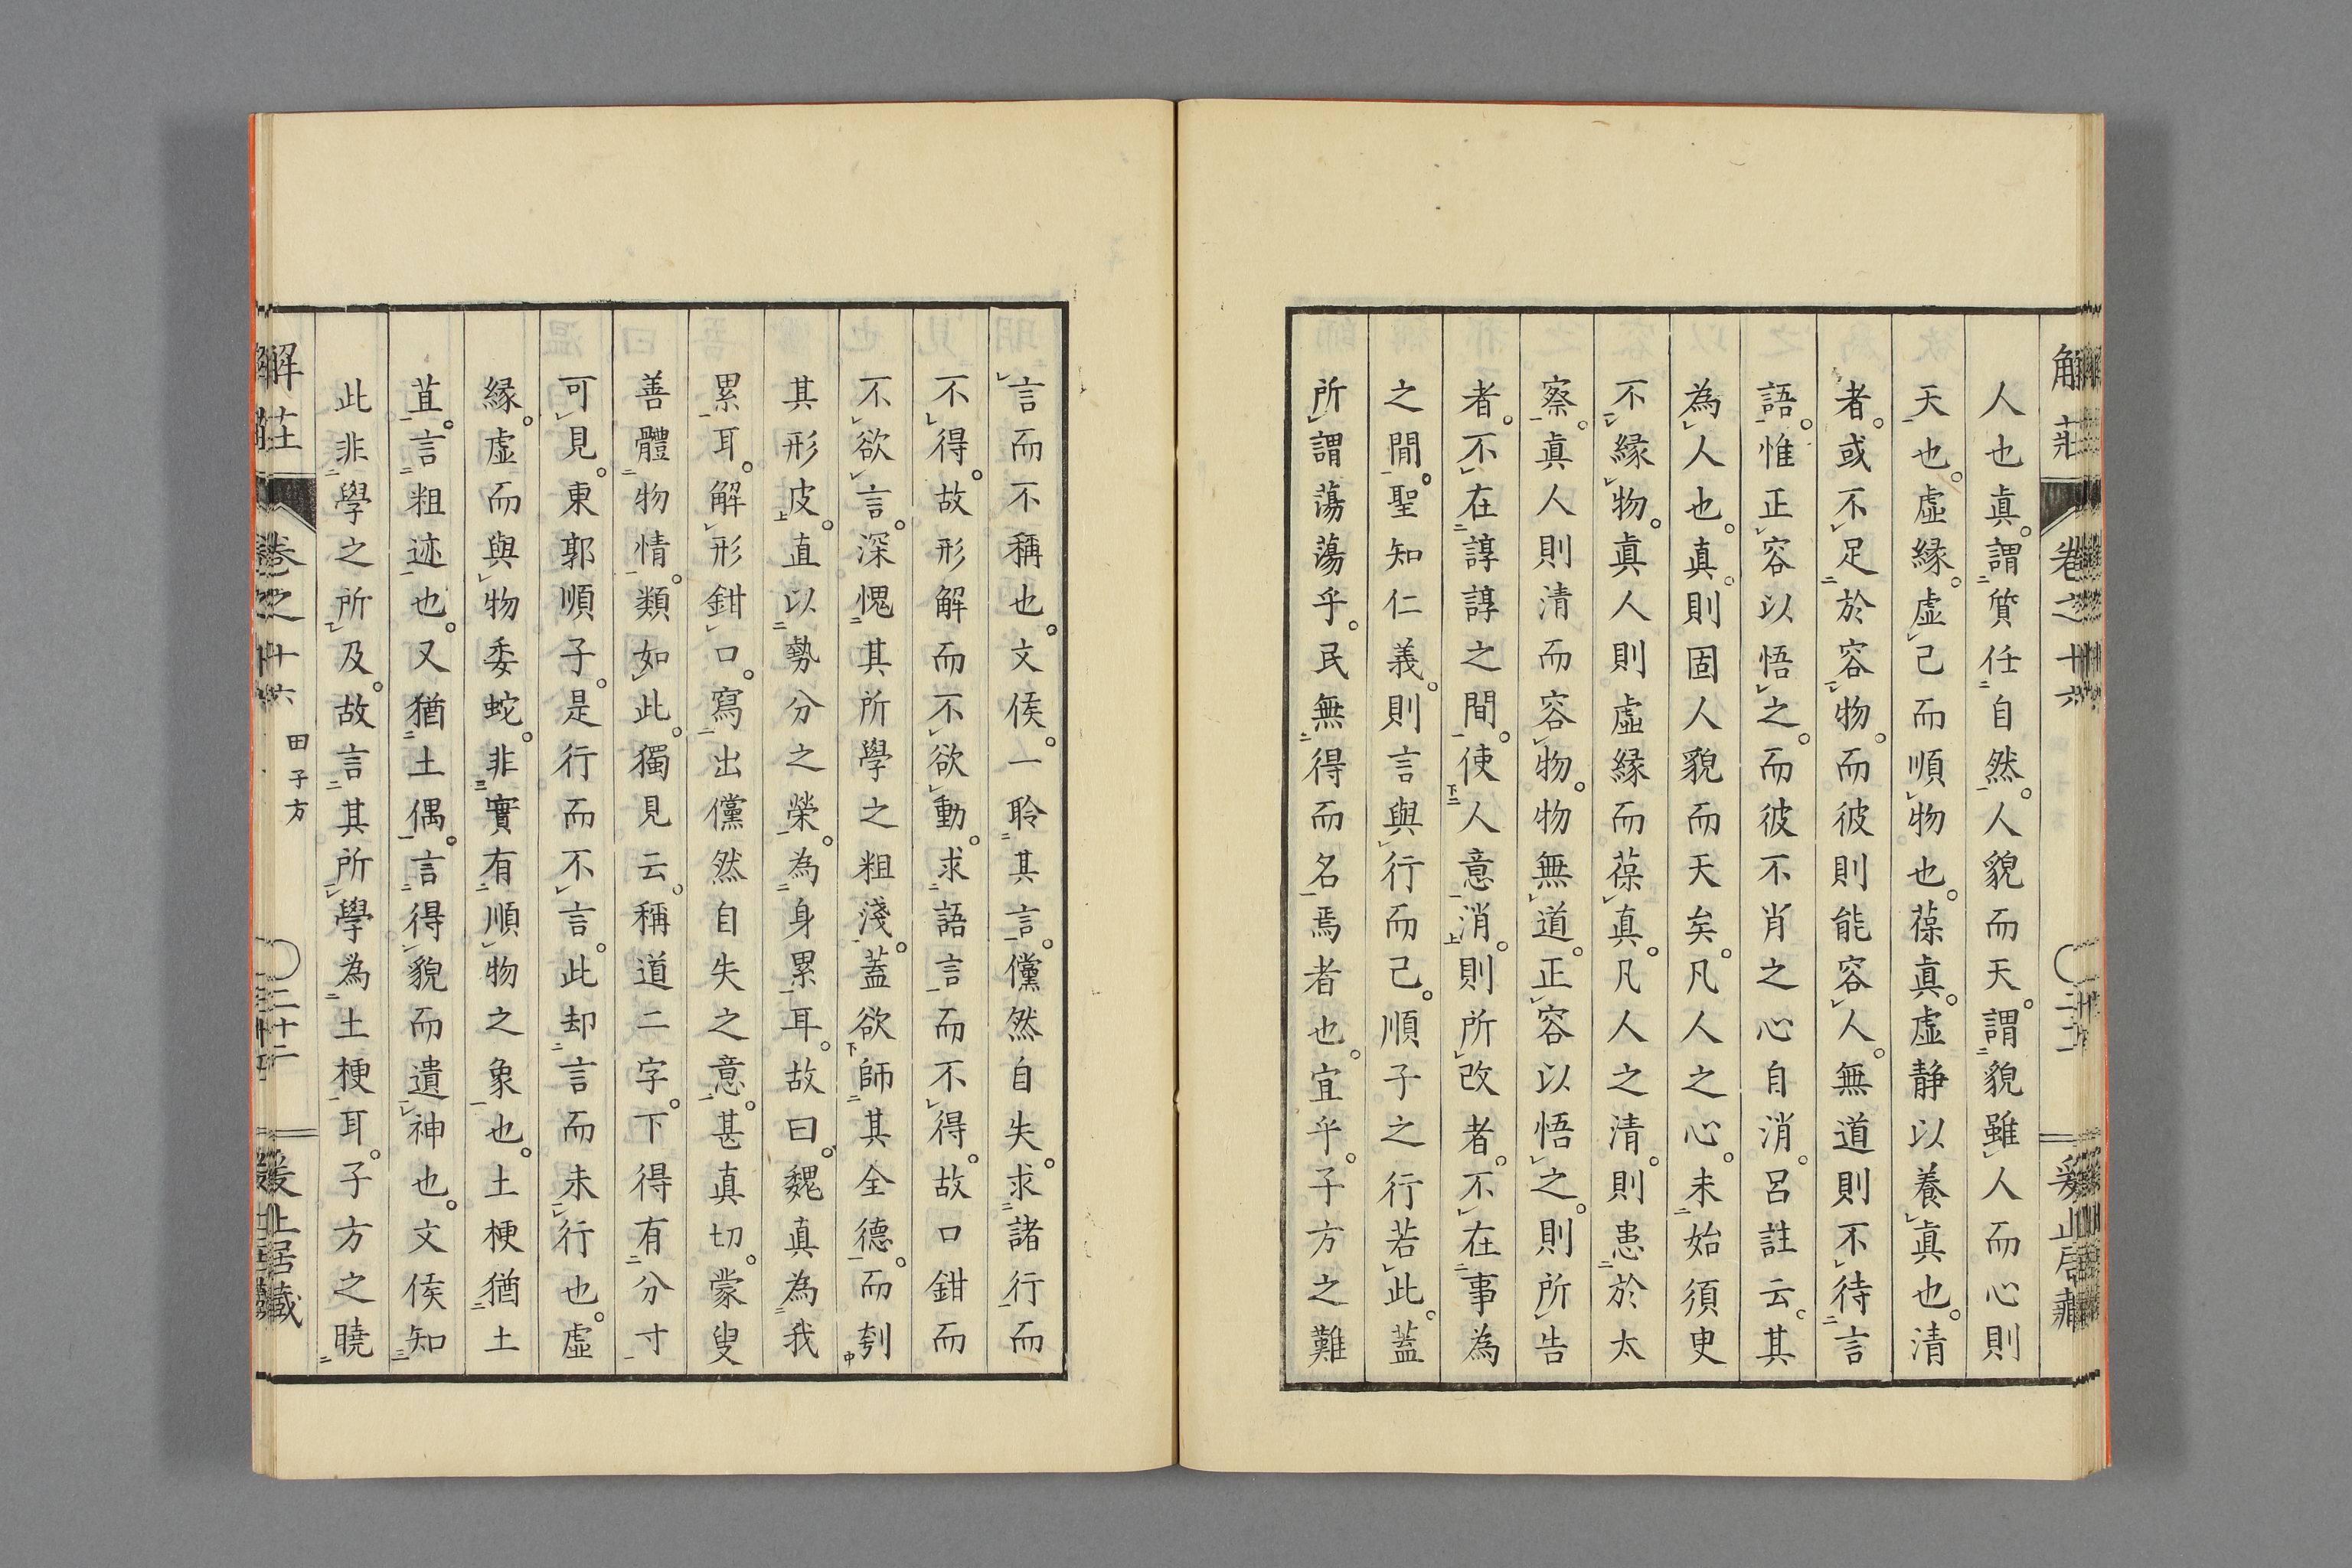 解莊 卷之十六
人也真。謂質任自然。人貌而天。謂貌雖人而心則
天也。虛緣。虛己而順物也。葆真。虛靜以養真也。清
者。或不足於容物。而彼則能容人。無道則不待言
語。惟正容以悟之。而彼不肖之心自消。呂註云。其
為人也。真。則固人貌而天矣。凡人之心。未始須臾
不緣物。真人則虛緣而葆真。凡人之清。則患於太
察。真人則清而容物。物無道。正容以悟之。則所告
者。不在諄諄之間。使人意消。則所改者。不在事為
之間。聖知仁義。則言與行而已。順子之行若此。蓋
所謂蕩蕩乎。民無得而名焉者也。宜乎。子方之難
言而不稱也。文侯。一聆其言。儻然自失。求諸行而
不得。故形解而不欲動。求語言而不得。故口鉗而
不欲言。深愧其所學之粗淺。蓋欲師其全德。而刳
其形皮。直以勢分之榮。為身累耳。故曰。魏真為我
累耳。解形鉗口。寫出儻然自失之意。甚真切。蒙叟
善體物情。類如此。獨見云。稱道二字。下得有分寸
可見。東郭順子。是行而不言。此却言而未行也。虛
緣。虛而與物委蛇。非實有順物之象也。土梗猶土
苴。言粗迹也。又猶土偶。言得貌而遺神也。文侯知
此非學之所及。故言其所學為土梗耳。子方之曉
解莊 卷之十六 田子方 二十二